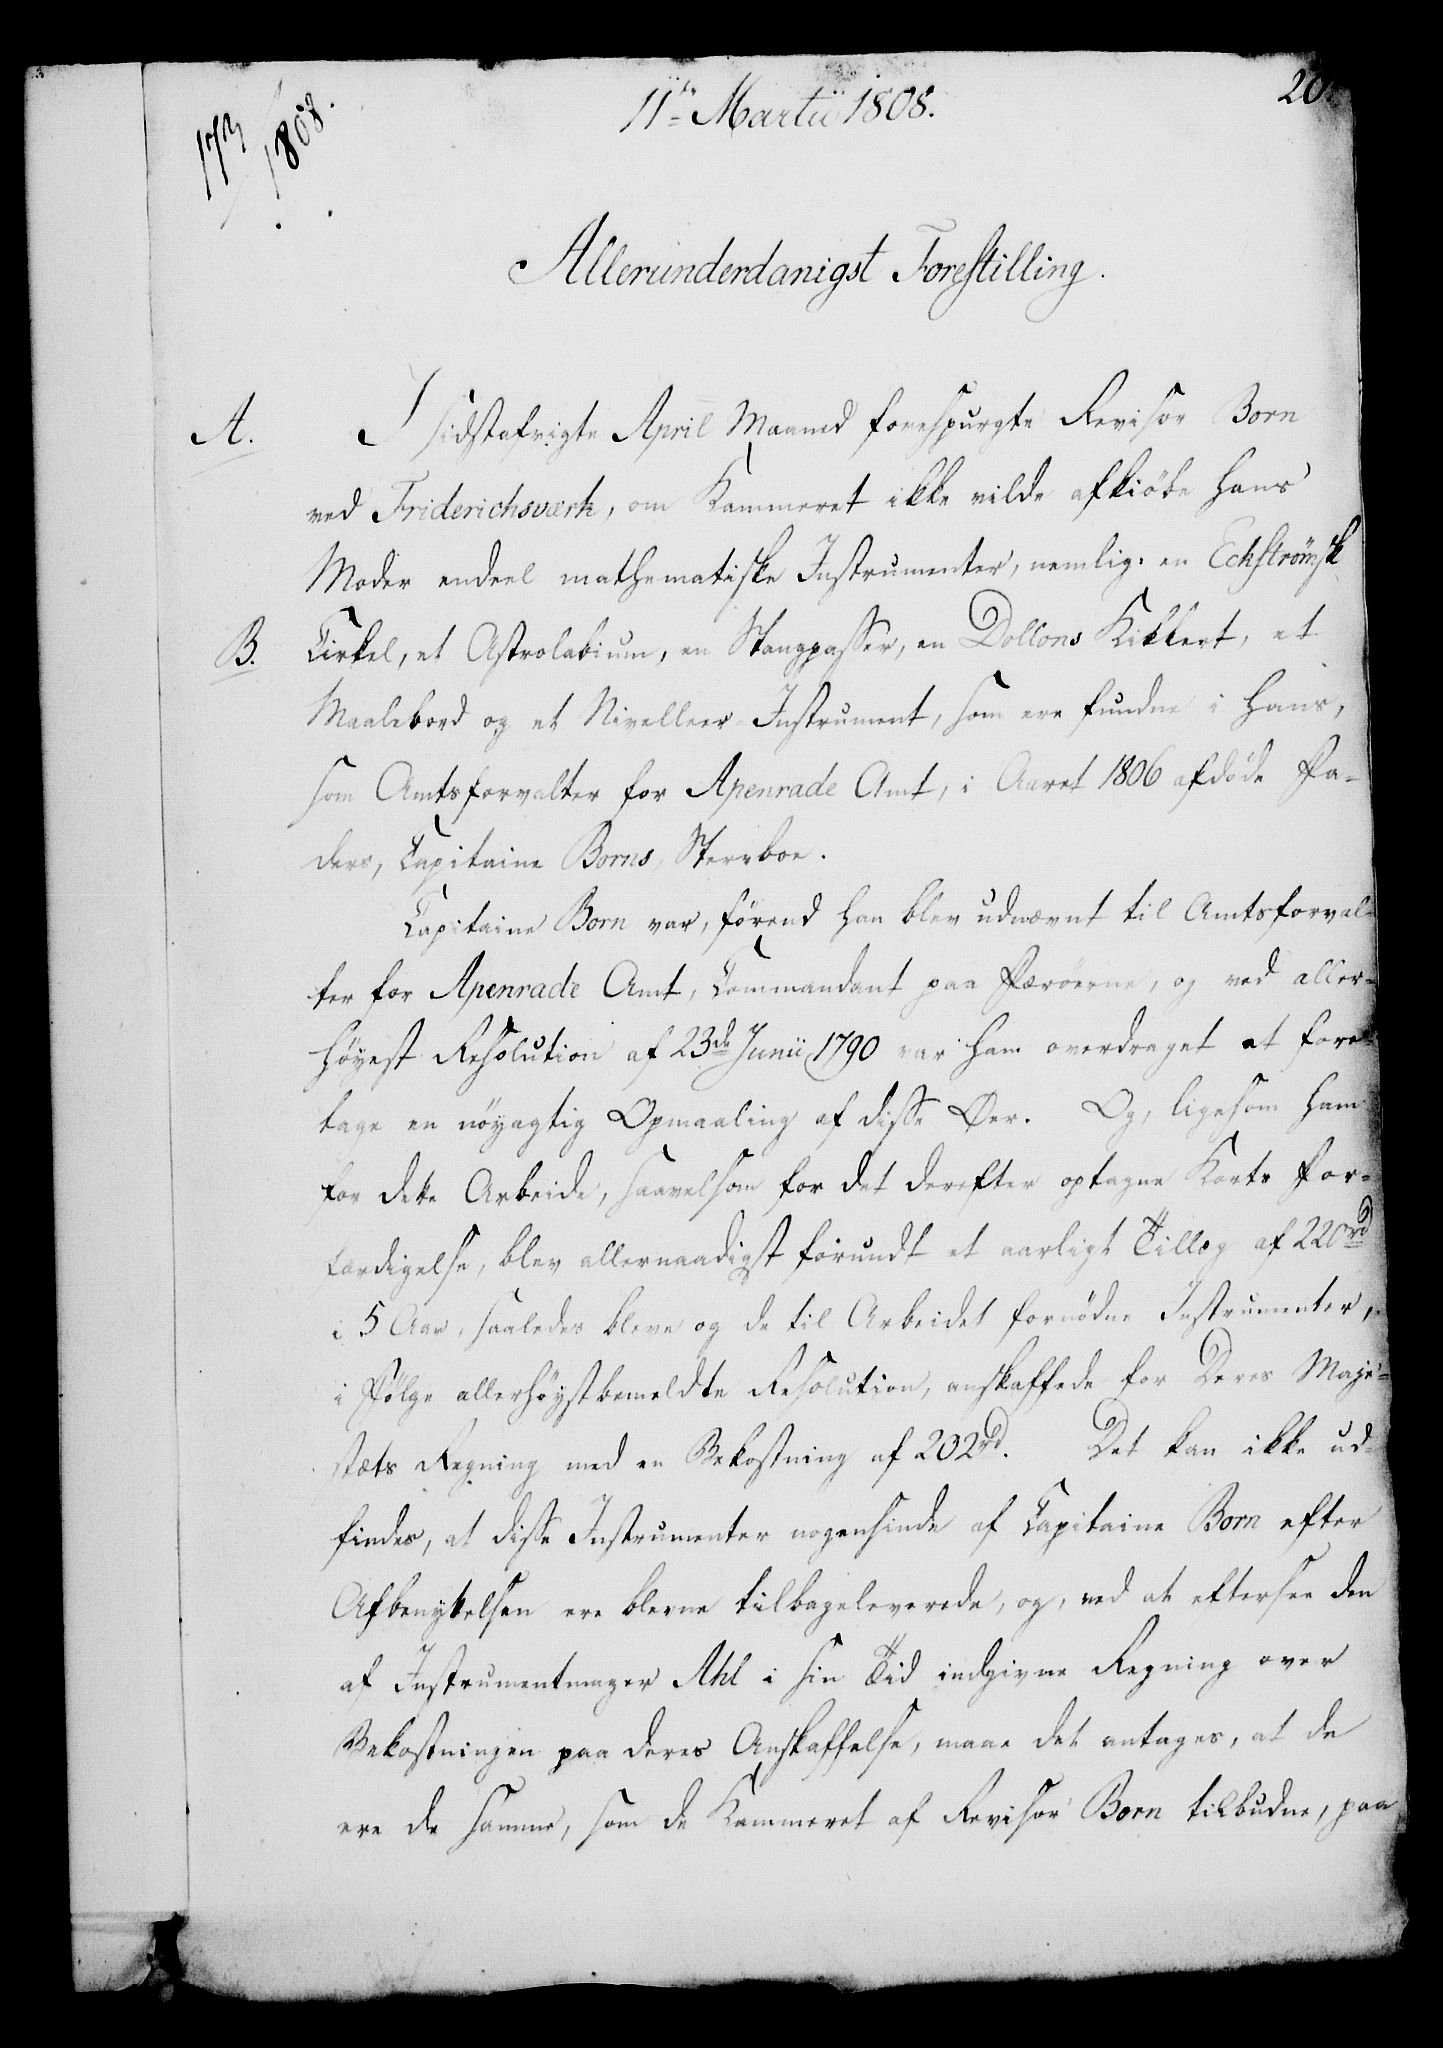 173
1808.
11te Martii 1808.
20
Allerunderdanigst Forestilling.
A. I sidstafvigte April Maaned forespurgte Revisor Born
ved Friderichsværk, om Kammeret ikke vilde afkiöbe hans
Moder endeel mathematiske Instrumenter, nemlig: en Eckströmsk
B. Cirkel, et Astrolabium, en Stangpasser, en Dollons Kikkert, et
Maalebord og et Nivelleer-Instrument, som ere fundne i hans,
som Amtsforvalter for Apenrade Amt, i Aaret 1806 afdöde Fa-
ders, Capitaine Borns, Stervboe.
Capitaine Born var, förend han blev udnævnt til Amtsforval-
ter for Apenrade Amt, Commandant paa Færöerne, og ved aller-
höyest Resolution af 23de Junii 1790 var ham overdraget at fore-
tage en nöyagtig Opmaaling af disse Øer. Og, ligesom ham
for dette Arbeide, saavelsom for det derefter optagne Korts For-
færdigelse, blev allernaadigst forundt et aarligt Tillæg af 220rd
i 5 Aar, saaledes bleve og de til Arbeidet fornödne Instrumenter,
i Fölge allerhöystbemeldte Resolution, anskaffede for Deres Maje-
stæts Regning med en Bekostning af 202rd. Det kan ikke ud-
findes, at disse Instrumenter nogensinde af Capitaine Born efter
Afbenyttelsen ere blevne tilbageleverede, og, ved at eftersee den
af Instrumentmager Ahl i sin Tid indgivne Regning over
Bekostningen paa deres Anskaffelse, maae det antages, at de
ere de samme, som de Kammeret af Revisor Born tilbudne, paa